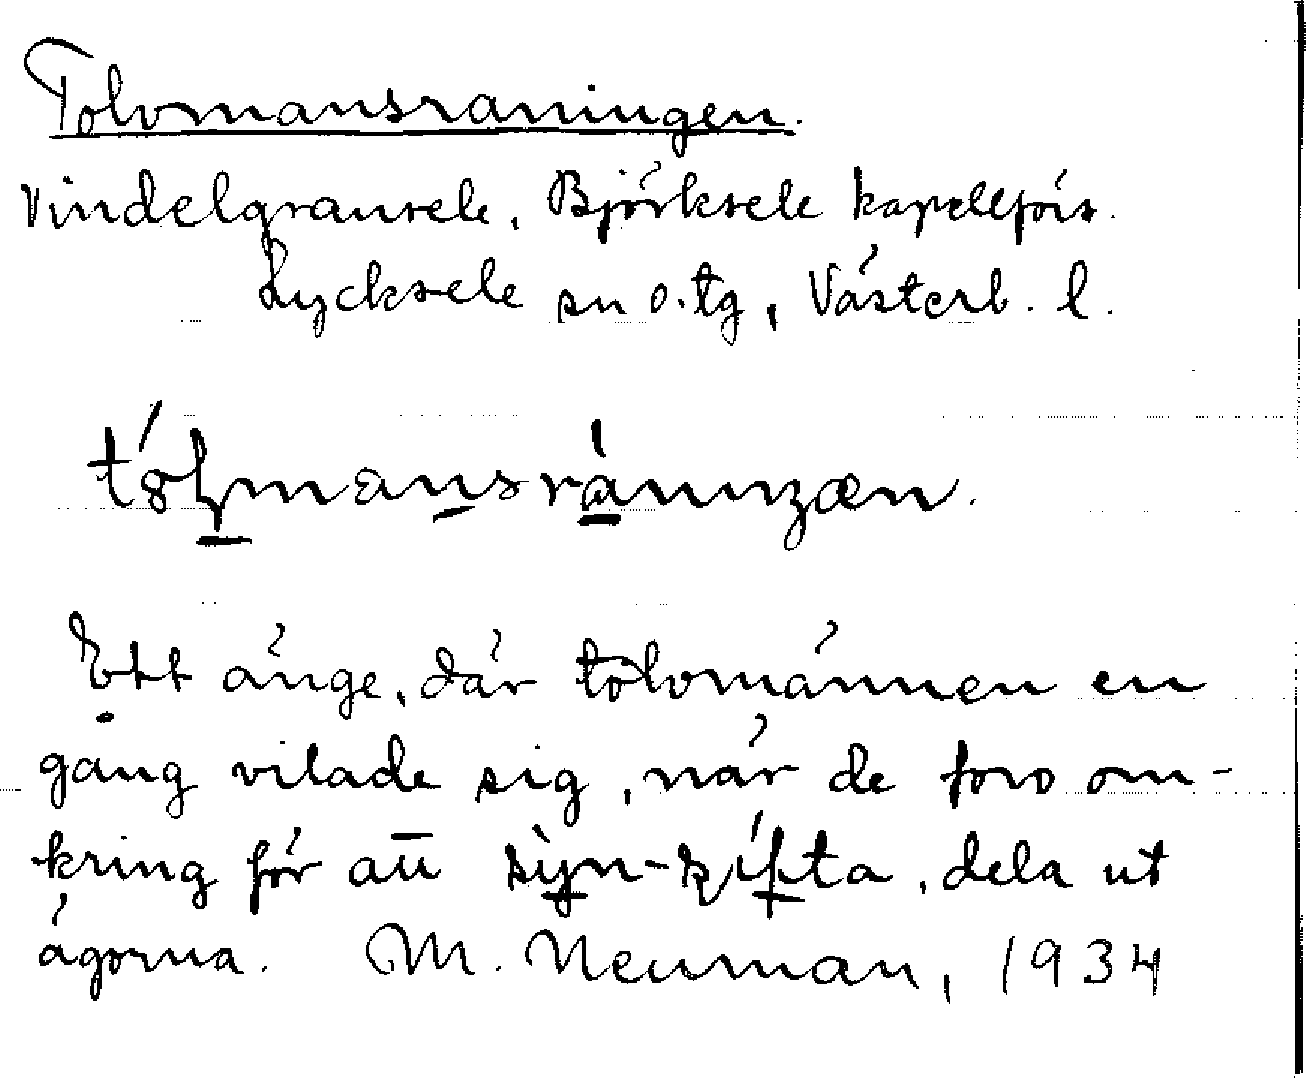 Tolvmansraningen.
Vindelgransele, Björksele kapellförs.
Lycksele sn o. tg, Västerb. l.
Ett änge, där tolvmännen en
gång vilade sig, när de foro om-
kring för att syn-skifta, dela ut
ägorna. M. Neuman, 1934